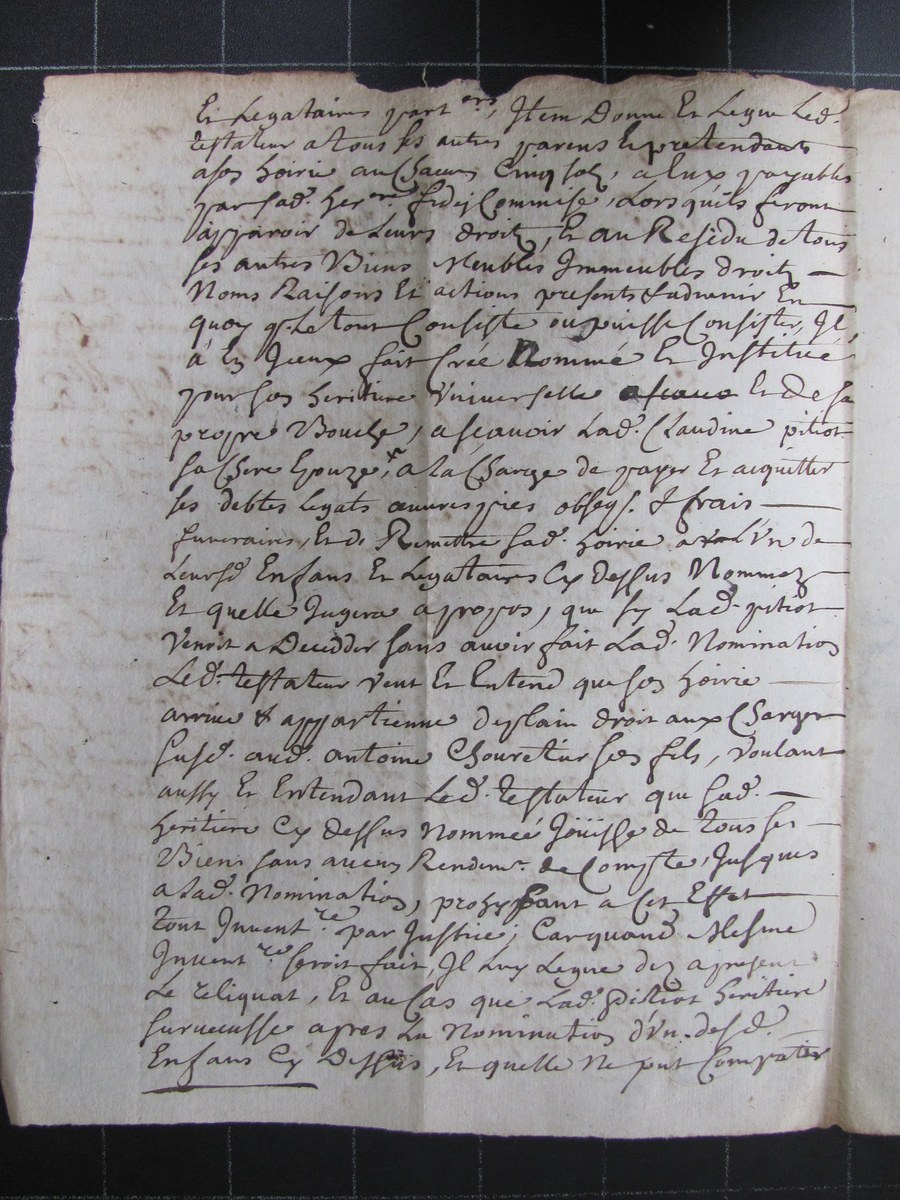 Et Legataires part ers, Item Donne Et Legue Led.
testateur a tous ses autres parens Et pretendants
a son hoirie au Chacun Cinq solz, a Eux payables
par sad. her re fideiCommise, Lors quils feront
apparoir de Leurs droitz, Et au Residu de tous
ses autres Biens Meubles Immeubles droitz —
Noms Raisons Et actions presents & aduenir En
quoy q. Le tout Consiste ou puisse Consister, Il
a En Jceux fait Créé Nommé Et Jnstitué
pour son heritiere Vniverselle Et De sa
propre Bouche, a scauoir Lad. Claudine pitiot
sa Chere Epouze, a la Charge de payer Et acquitter
ses debtes Legats œuvres pies obseq. & frais —
funeraires, Et de Remettre sad. hoirie a L'Vn de
Leursd Enfans Et Legataires Cy Dessus Nommez
Et quelle Jugera a propos, que sy Lad. pitiot
Venoit a Decedder sans auoir fait Lad. Nomination
Led. testateur veut Et Entend que son hoirie —
arriue & appartienne de plain droit aux Charges
susd. aud. antoine Chouretier son fils, Voulant
aussy Et Entendant Led. testateur que sad. —
heritiere Cy dessus nommeé Joüisse de tous ses —
Biens sans aucun Rendem.t de Compte, Jusques
a lad. Nomination, prohibant a Cet Effet
tout Inuent re par Justice, Car quand Mesme
Inuent re seroit fait, Il Luy Legue dez a present
Le reliquat, Et au Cas que Lad. pitiot heritiere
suruecusse apres La Nomination d'Vn desd. —
Enfans Cy Dessus, Et quelle Ne put Compatir